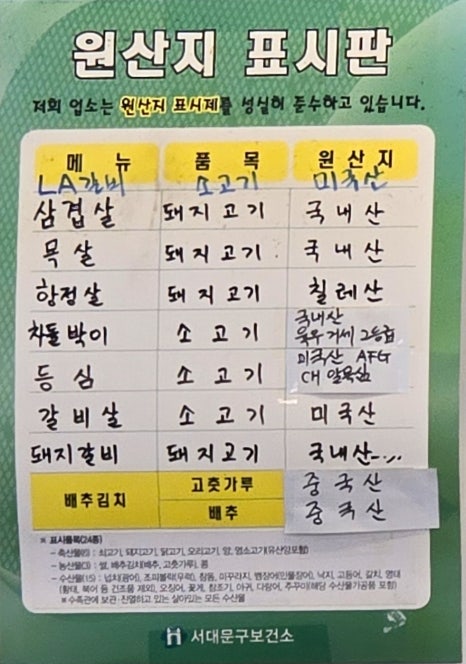 원산지 표시판
저희 업소는 원산지 표시제를 성실히 준수하고 있습니다.
메 뉴 품 목 원 산 지
LA갈비 소고기 미국산
삼겹살 돼지고기 국내산
목살 돼지고기 국내산
항정살 돼지고기 칠레산
차돌박이 소고기 국내산
육우 거세 2등급
등심 소고기 미국산 AFG
CH 알목심
갈비살 소고기 미국산
돼지갈비 돼지고기 국내산
배추김치 고춧가루 중국산
배추 중국산
※ 표시품목(24종)
- 축산물(6) : 쇠고기, 돼지고기, 닭고기, 오리고기, 양, 염소고기(유산양포함)
- 농산물(3) : 쌀, 배추김치(배추, 고춧가루), 콩
- 수산물(15) : 넙치(광어), 조피볼락(우럭), 참돔, 미꾸라지, 뱀장어(민물장어), 낙지, 고등어, 갈치, 명태
(황태, 북어 등 건조품 제외), 오징어, 꽃게, 참조기, 아귀, 다랑어, 주꾸미(해당 수산물가공품 포함)
※ 수족관에 보관·진열하고 있는 살아있는 모든 수산물
서대문구보건소